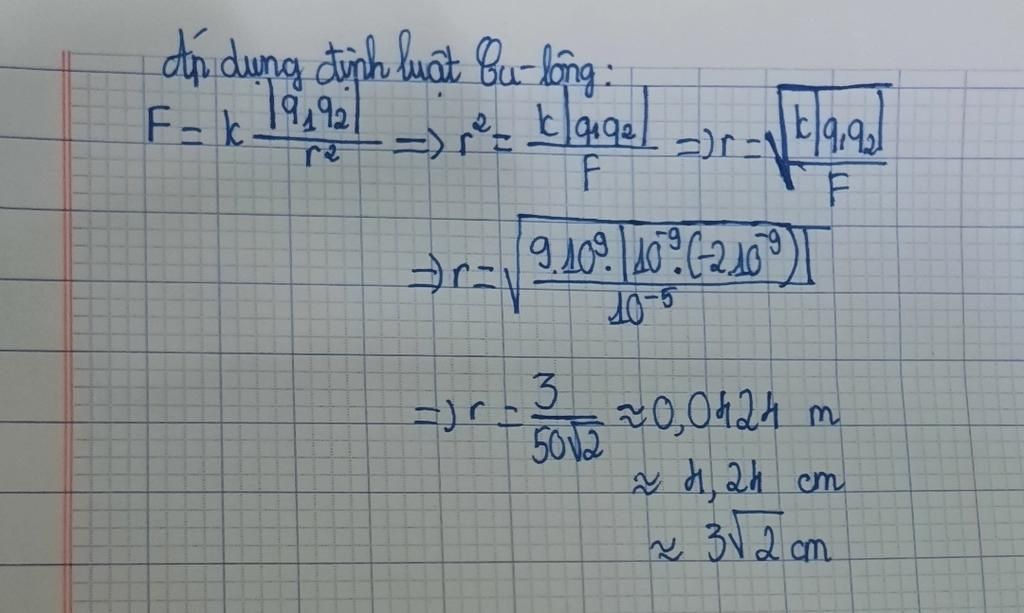 Áp dụng định luật Cu-lông:
F = k |q₁q₂| / r² => r² = k|q₁q₂| / F => r = √(k|q₁q₂| / F)
=> r = √(9.10⁹.|10⁻⁹.(-2.10⁻⁹)| / 10⁻⁵)
=> r = 3 / 50√2 ≈ 0,0424 m
≈ 4,24 cm
≈ 3√2 cm